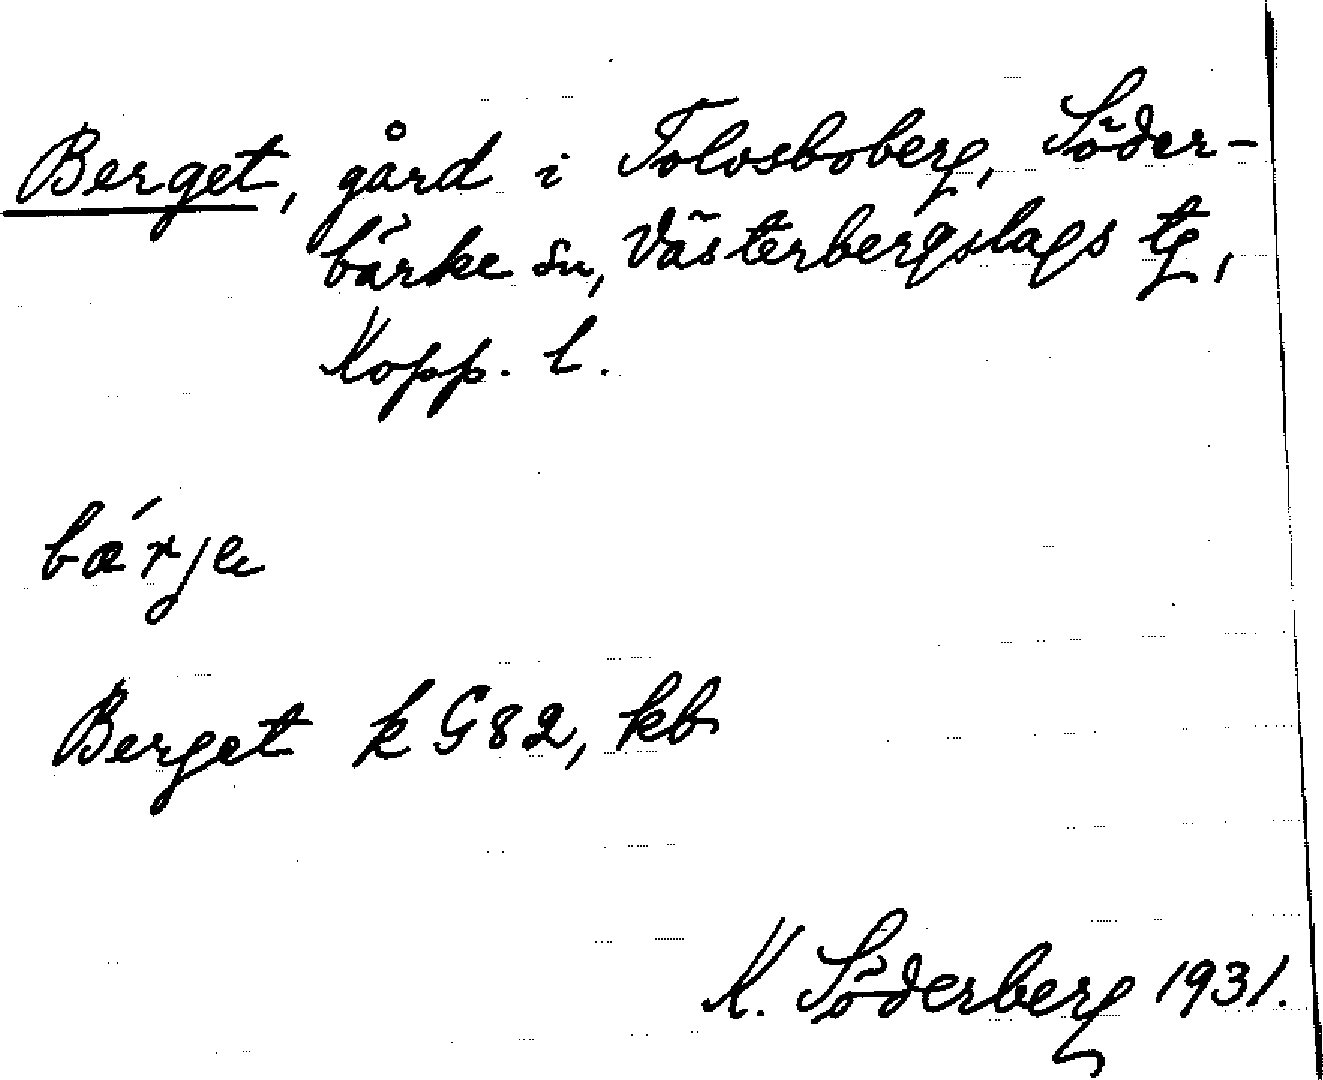 Berget, gård i Tolvsboberg, Söder-
bärke sn, Västerbergslags tg,
Kopp. l.
bæ´rje
Berget k G82, kb
K. Söderberg 1931.